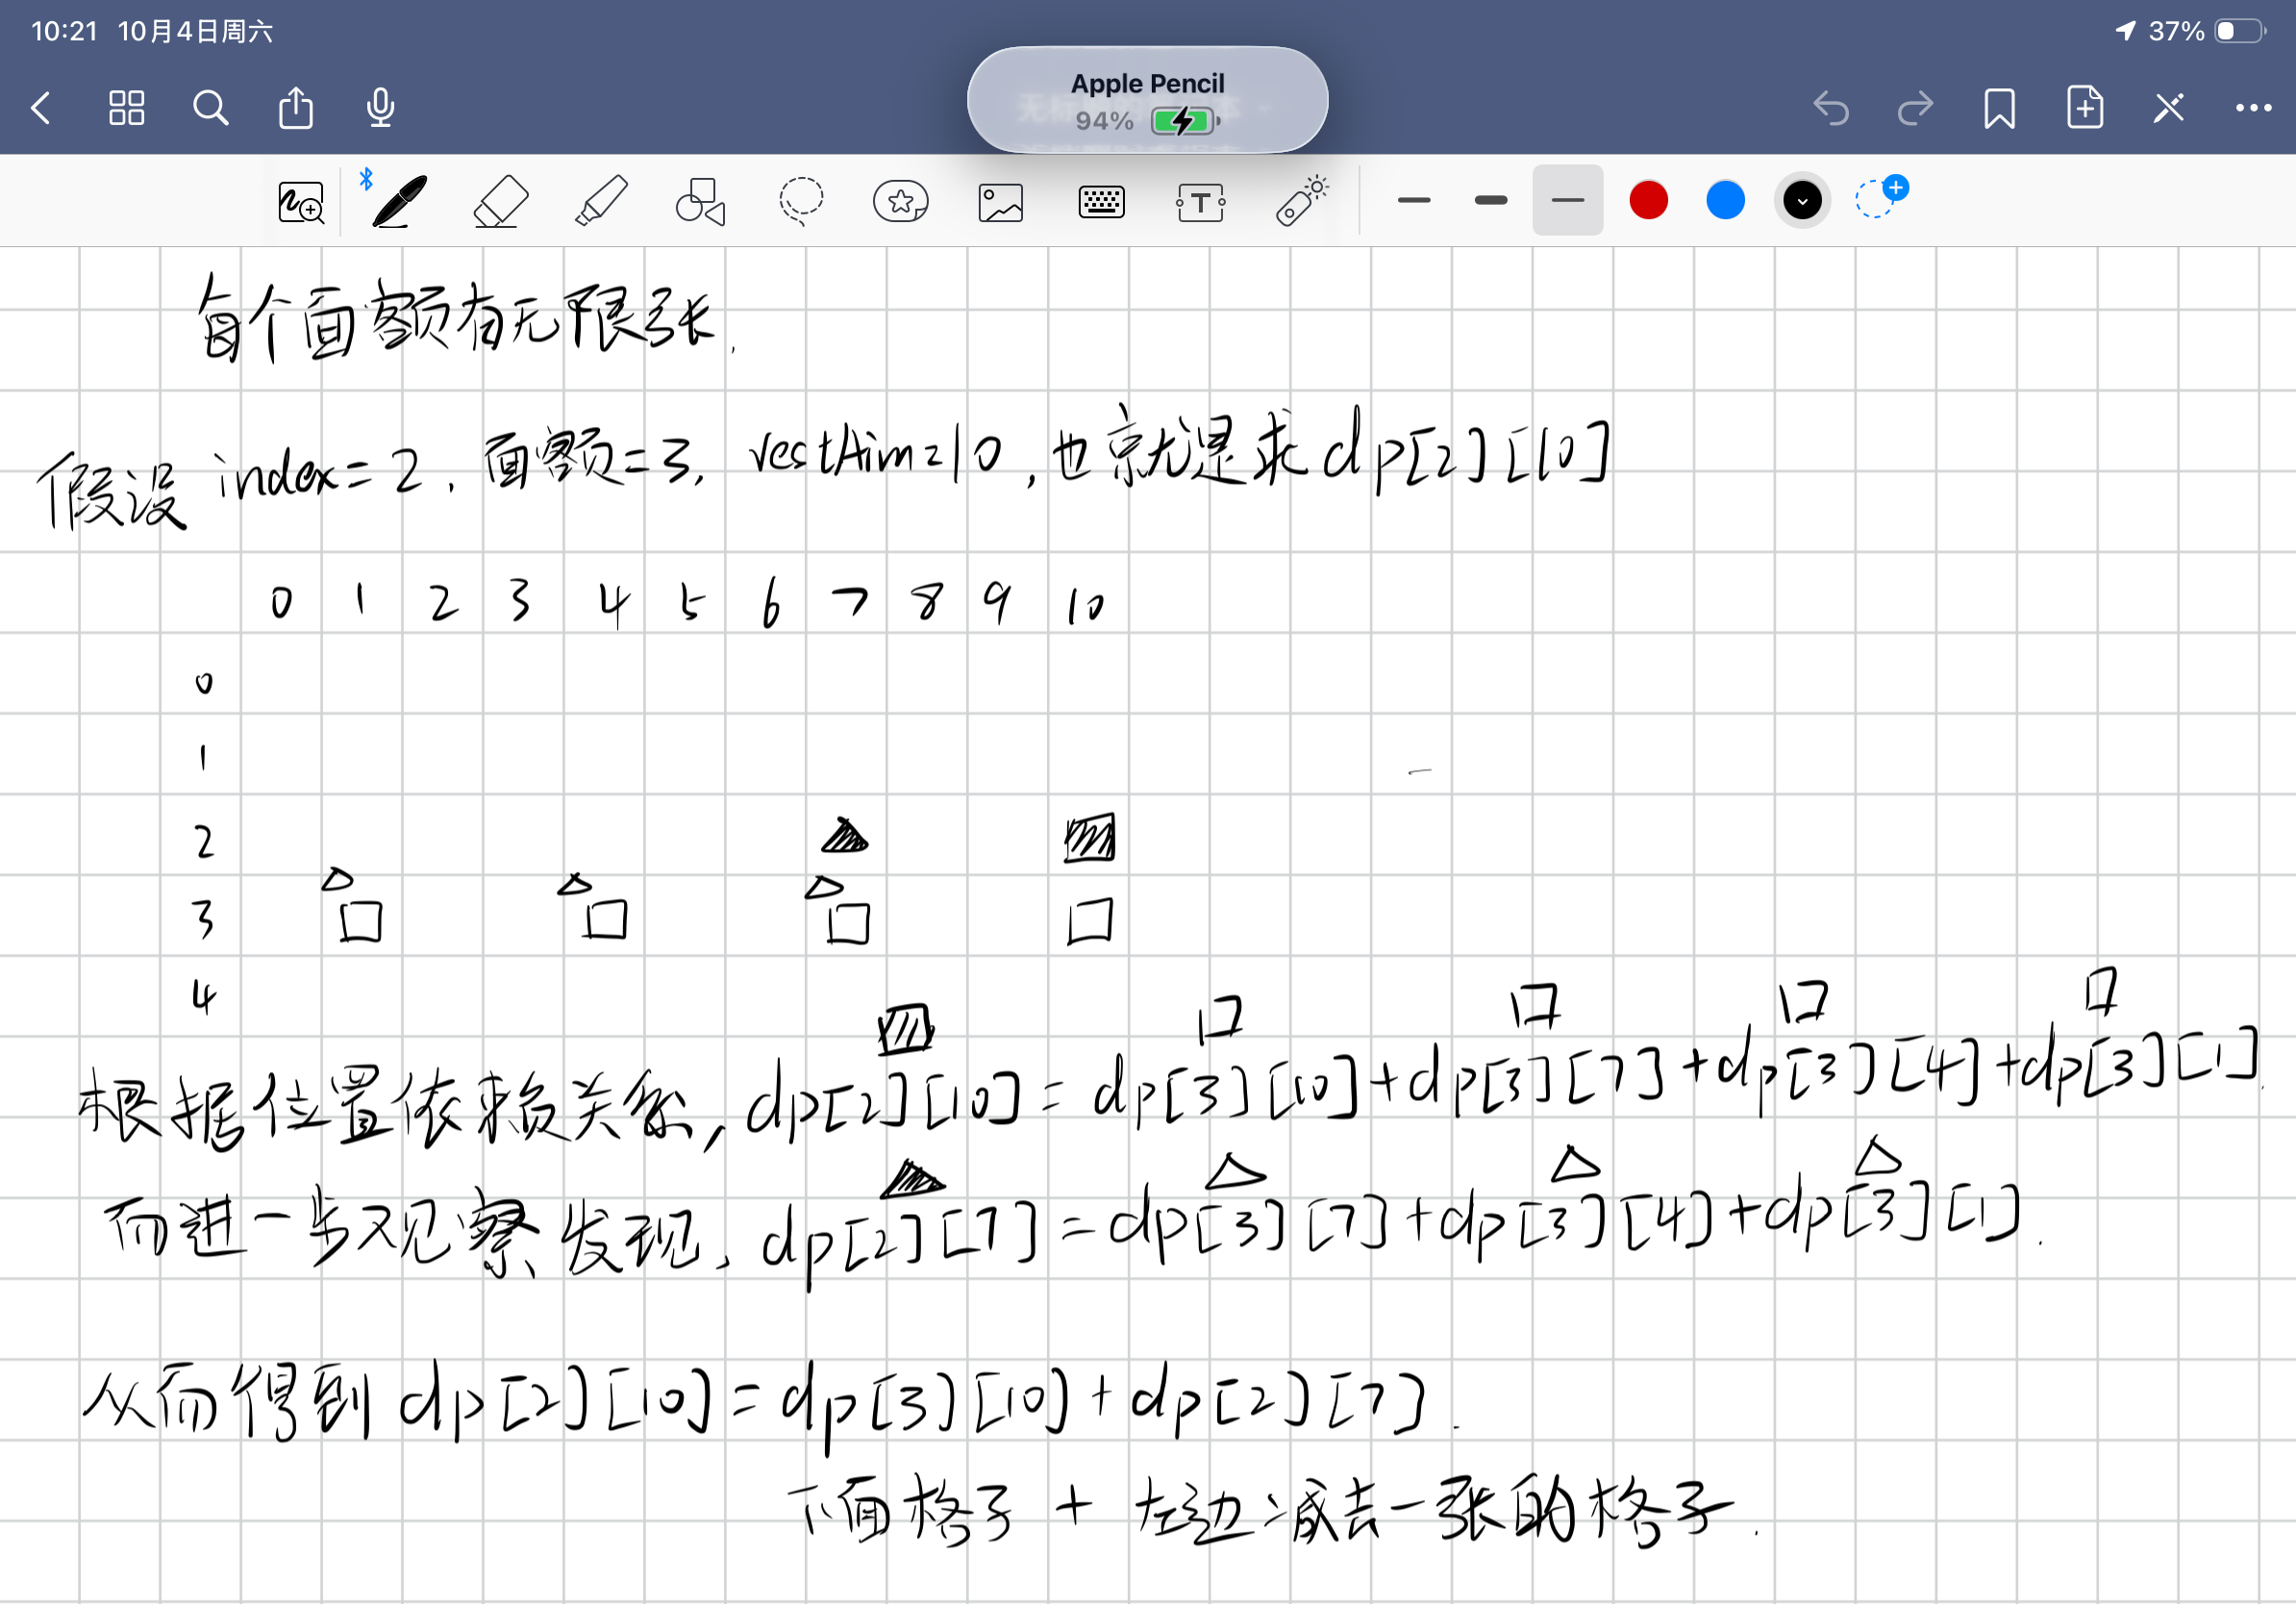 10:21 10月4日周六
37%
Apple Pencil
94%
每个面额有无限张.
假设 index=2. 面额=3, restAim=10, 也就是求dp[2][10]
0 1 2 3 4 5 6 7 8 9 10
0
1
2
3
4
根据位置依赖关系, dp[2][10] = dp[3][10]+dp[3][7]+dp[3][4]+dp[3][1].
而进一步观察发现, dp[2][7]=dp[3][7]+dp[3][4]+dp[3][1].
从而得到 dp[2][10]=dp[3][10]+dp[2][7].
下面格子 + 左边减去一张的格子.